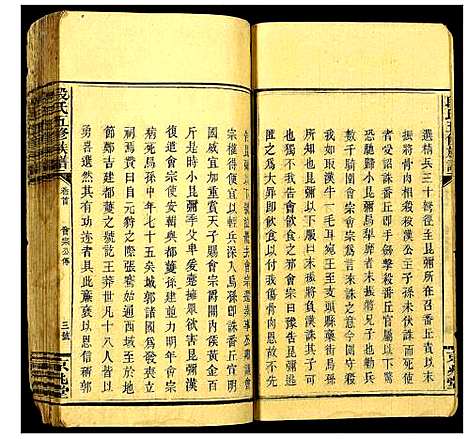 選精兵三十弩徑至昆彌所在召番丘責以
末振將骨肉相殺殺漢公主子孫未伏誅而死使者受詔誅
番丘即手劍擊殺番丘官屬以下驚
恐馳歸小昆彌烏犂靡者末振將兄子也勒兵
數千騎圍會宗會宗為言來誅之意今圍守殺
我如取漢牛一毛耳宛王郅支頭縣藁街烏孫
所知也昆彌以下服曰末振將負漢誅其子可
也獨不可告我令飲食之邪會宗曰豫告昆彌
逃匿之為大罪即飲食以付我傷骨肉恩故不先
告昆彌以下號泣罷去會宗還奏事公卿議會
宗權得便宜以輕兵深入烏孫即誅番丘宣明
國威宜加重賞天子賜會宗爵關內侯黃金百
斤是時小昆彌季父卑爰疐擁眾欲害昆彌漢
復遣會宗使安輯與都護孫建并力明年會宗
病死烏孫中年七十五矣城郭諸國為發喪立
祠焉贊曰自元狩之際張騫始通西域至於地
節鄭吉建都護之號訖王莽世凡十八人皆以
勇畧選然其有功迹者具此廉褒以恩信稱郭
段氏五修族譜
卷首
會宗公傳
三號
京兆堂